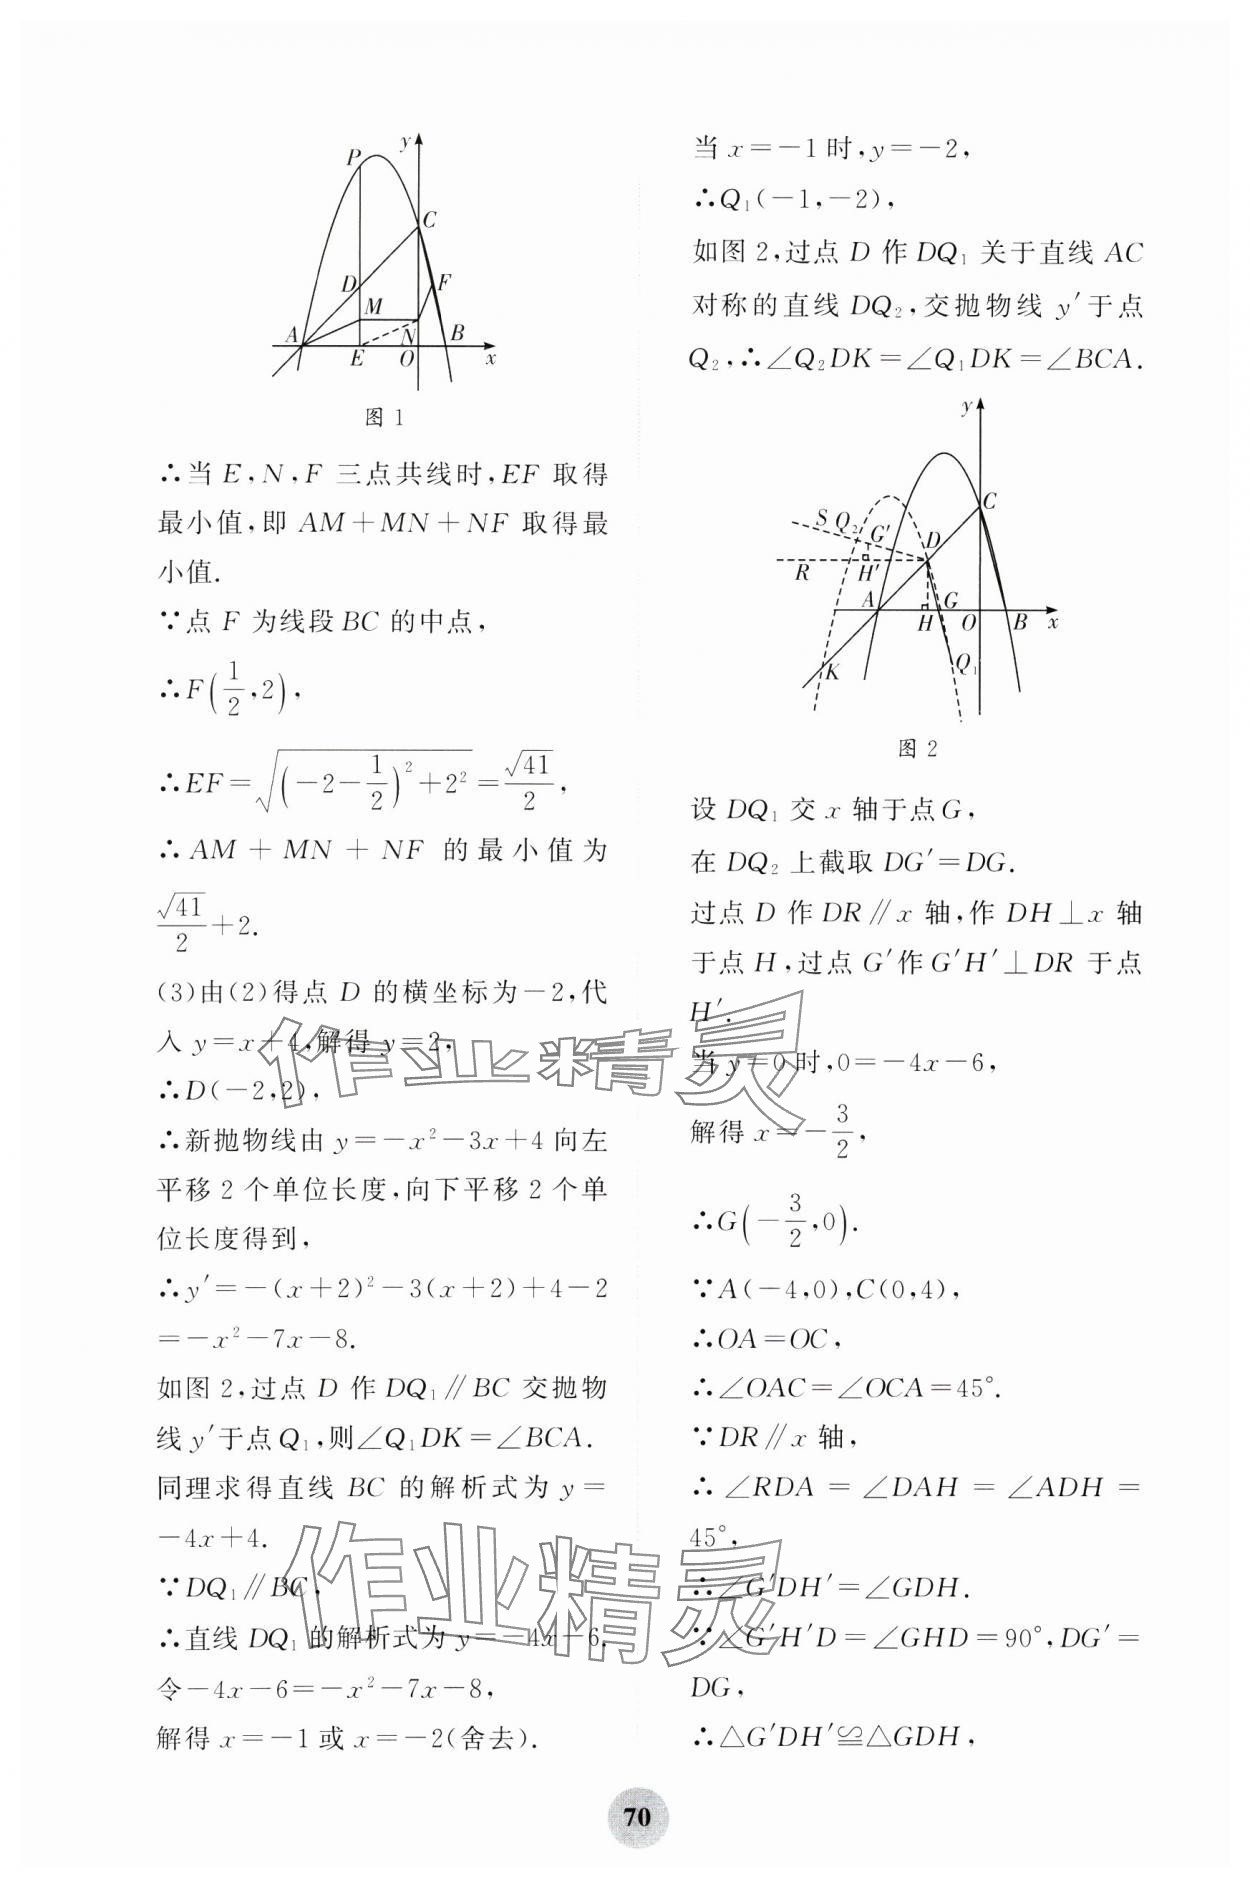 y
P
C
D
F
M
A
N
B
E
O
x
图 1
∴当 E,N,F 三点共线时,EF 取得
最小值,即 AM+MN+NF 取得最
小值.
∵点 F 为线段 BC 的中点,
∴F(1/2,2),
∴EF=√((−2−1/2)²+2²)=√41/2,
∴AM+MN+NF 的最小值为
√41/2+2.
(3)由(2)得点 D 的横坐标为−2,代
入 y=x+4,解得 y=2,
∴D(−2,2),
∴新抛物线由 y=−x²−3x+4 向左
平移 2 个单位长度,向下平移 2 个单
位长度得到,
∴y′=−(x+2)²−3(x+2)+4−2
=−x²−7x−8.
如图 2,过点 D 作 DQ₁∥BC 交抛物
线 y′于点 Q₁,则∠Q₁DK=∠BCA.
同理求得直线 BC 的解析式为 y=
−4x+4.
∵DQ₁∥BC,
∴直线 DQ₁ 的解析式为 y=−4x−6.
令−4x−6=−x²−7x−8,
解得 x=−1 或 x=−2(舍去).
当 x=−1 时,y=−2,
∴Q₁(−1,−2),
如图 2,过点 D 作 DQ₁ 关于直线 AC
对称的直线 DQ₂,交抛物线 y′于点
Q₂,∴∠Q₂DK=∠Q₁DK=∠BCA.
y
C
S
Q₂
G′
D
R
H′
A
G
H
O
B
x
K
Q₁
图 2
设 DQ₁ 交 x 轴于点 G,
在 DQ₂ 上截取 DG′=DG.
过点 D 作 DR∥x 轴,作 DH⊥x 轴
于点 H,过点 G′作 G′H′⊥DR 于点
H′.
当 y=0 时,0=−4x−6,
解得 x=−3/2,
∴G(−3/2,0).
∵A(−4,0),C(0,4),
∴OA=OC,
∴∠OAC=∠OCA=45°.
∵DR∥x 轴,
∴∠RDA=∠DAH=∠ADH=
45°,
∴∠G′DH′=∠GDH.
∵∠G′H′D=∠GHD=90°,DG′=
DG,
∴△G′DH′≌△GDH,
作业精灵
作业精灵
70